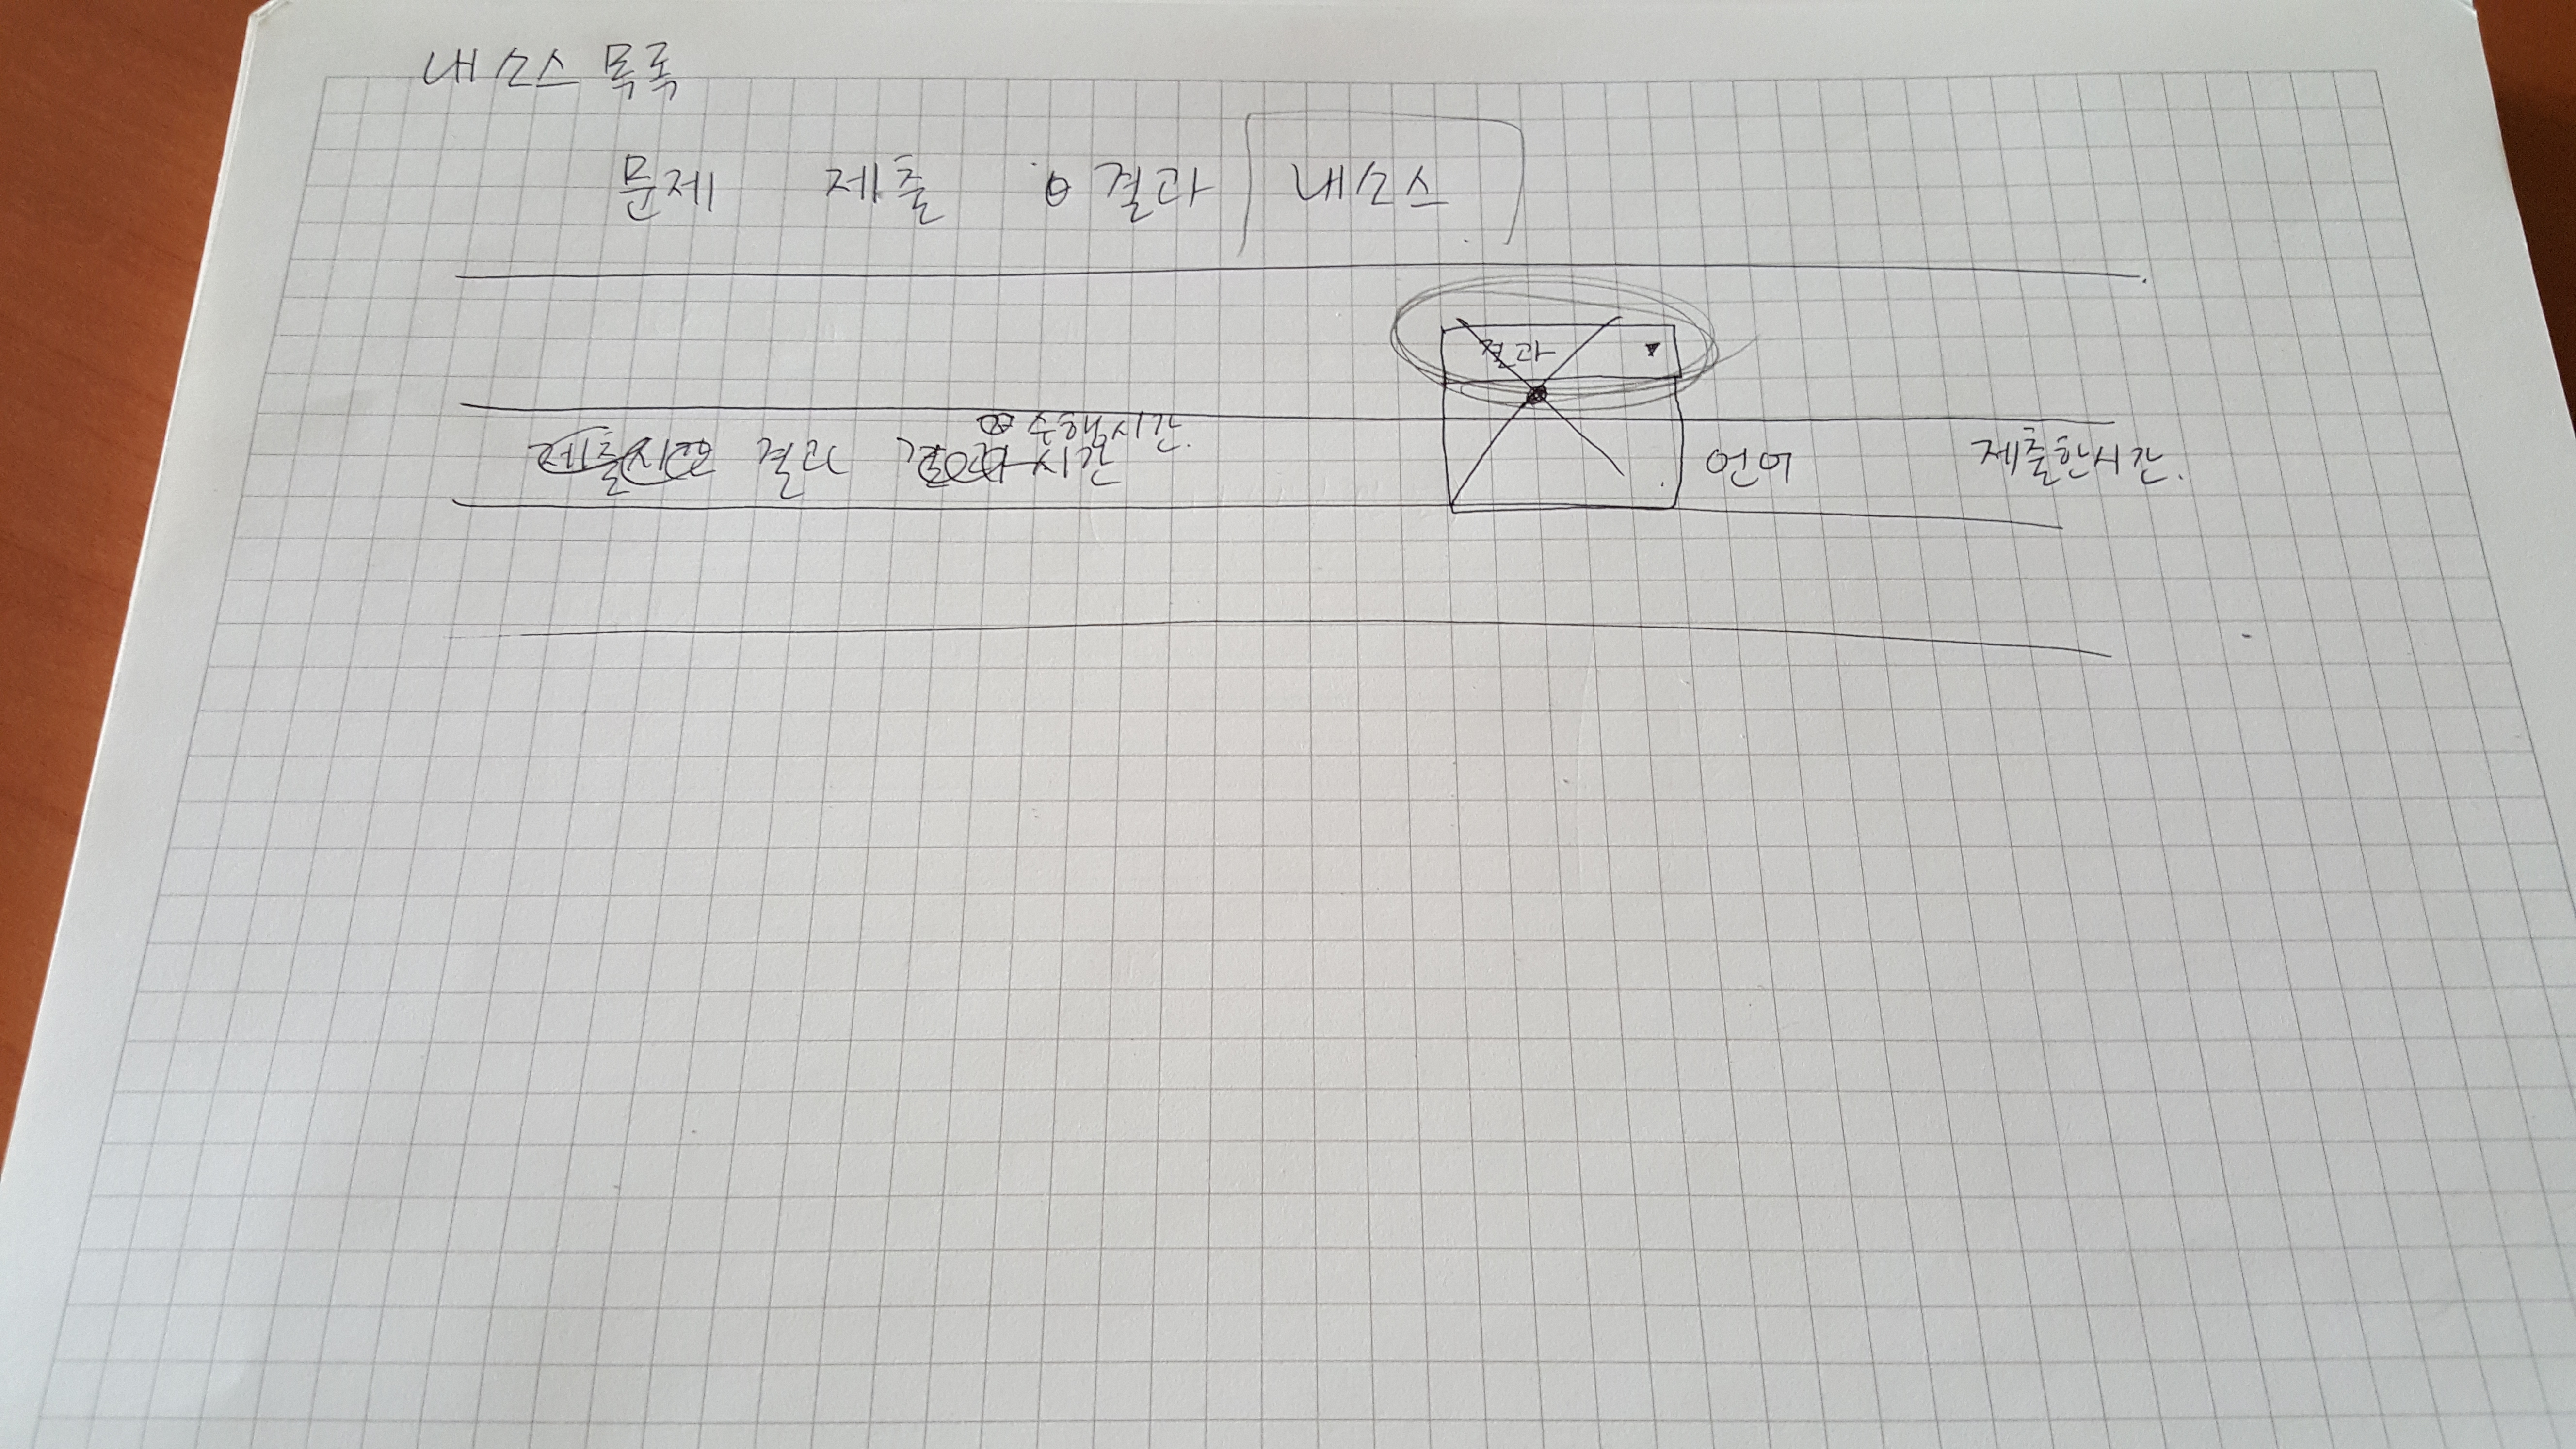 내 소스 목록
문제 제출 결과 내소스
결과
수행시간.
결과 시간 언어 제출한시간.